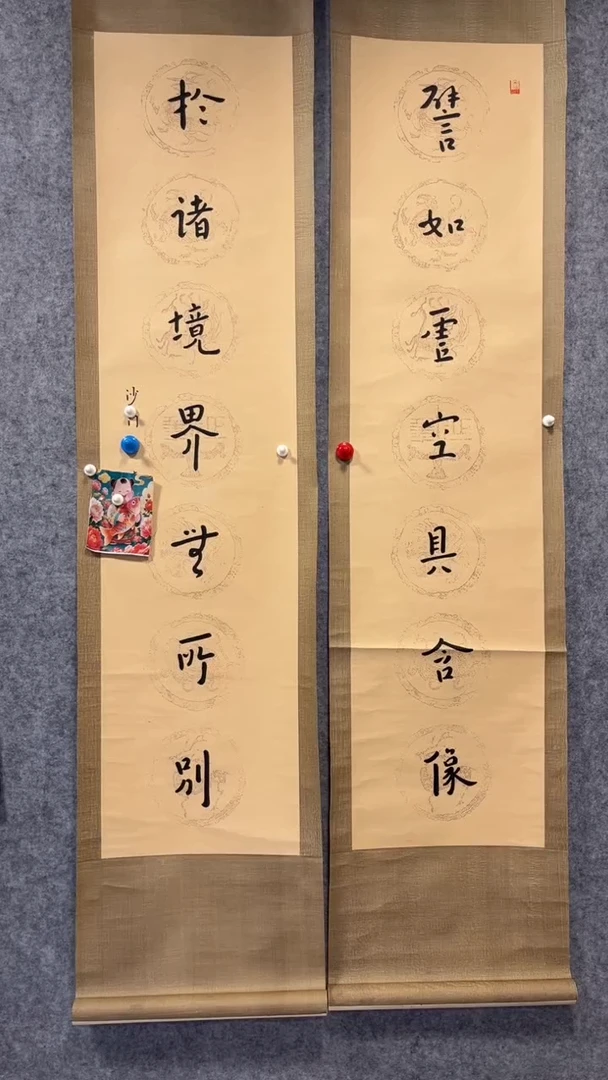 譬如虛空具含像
於諸境界無所別
沙門